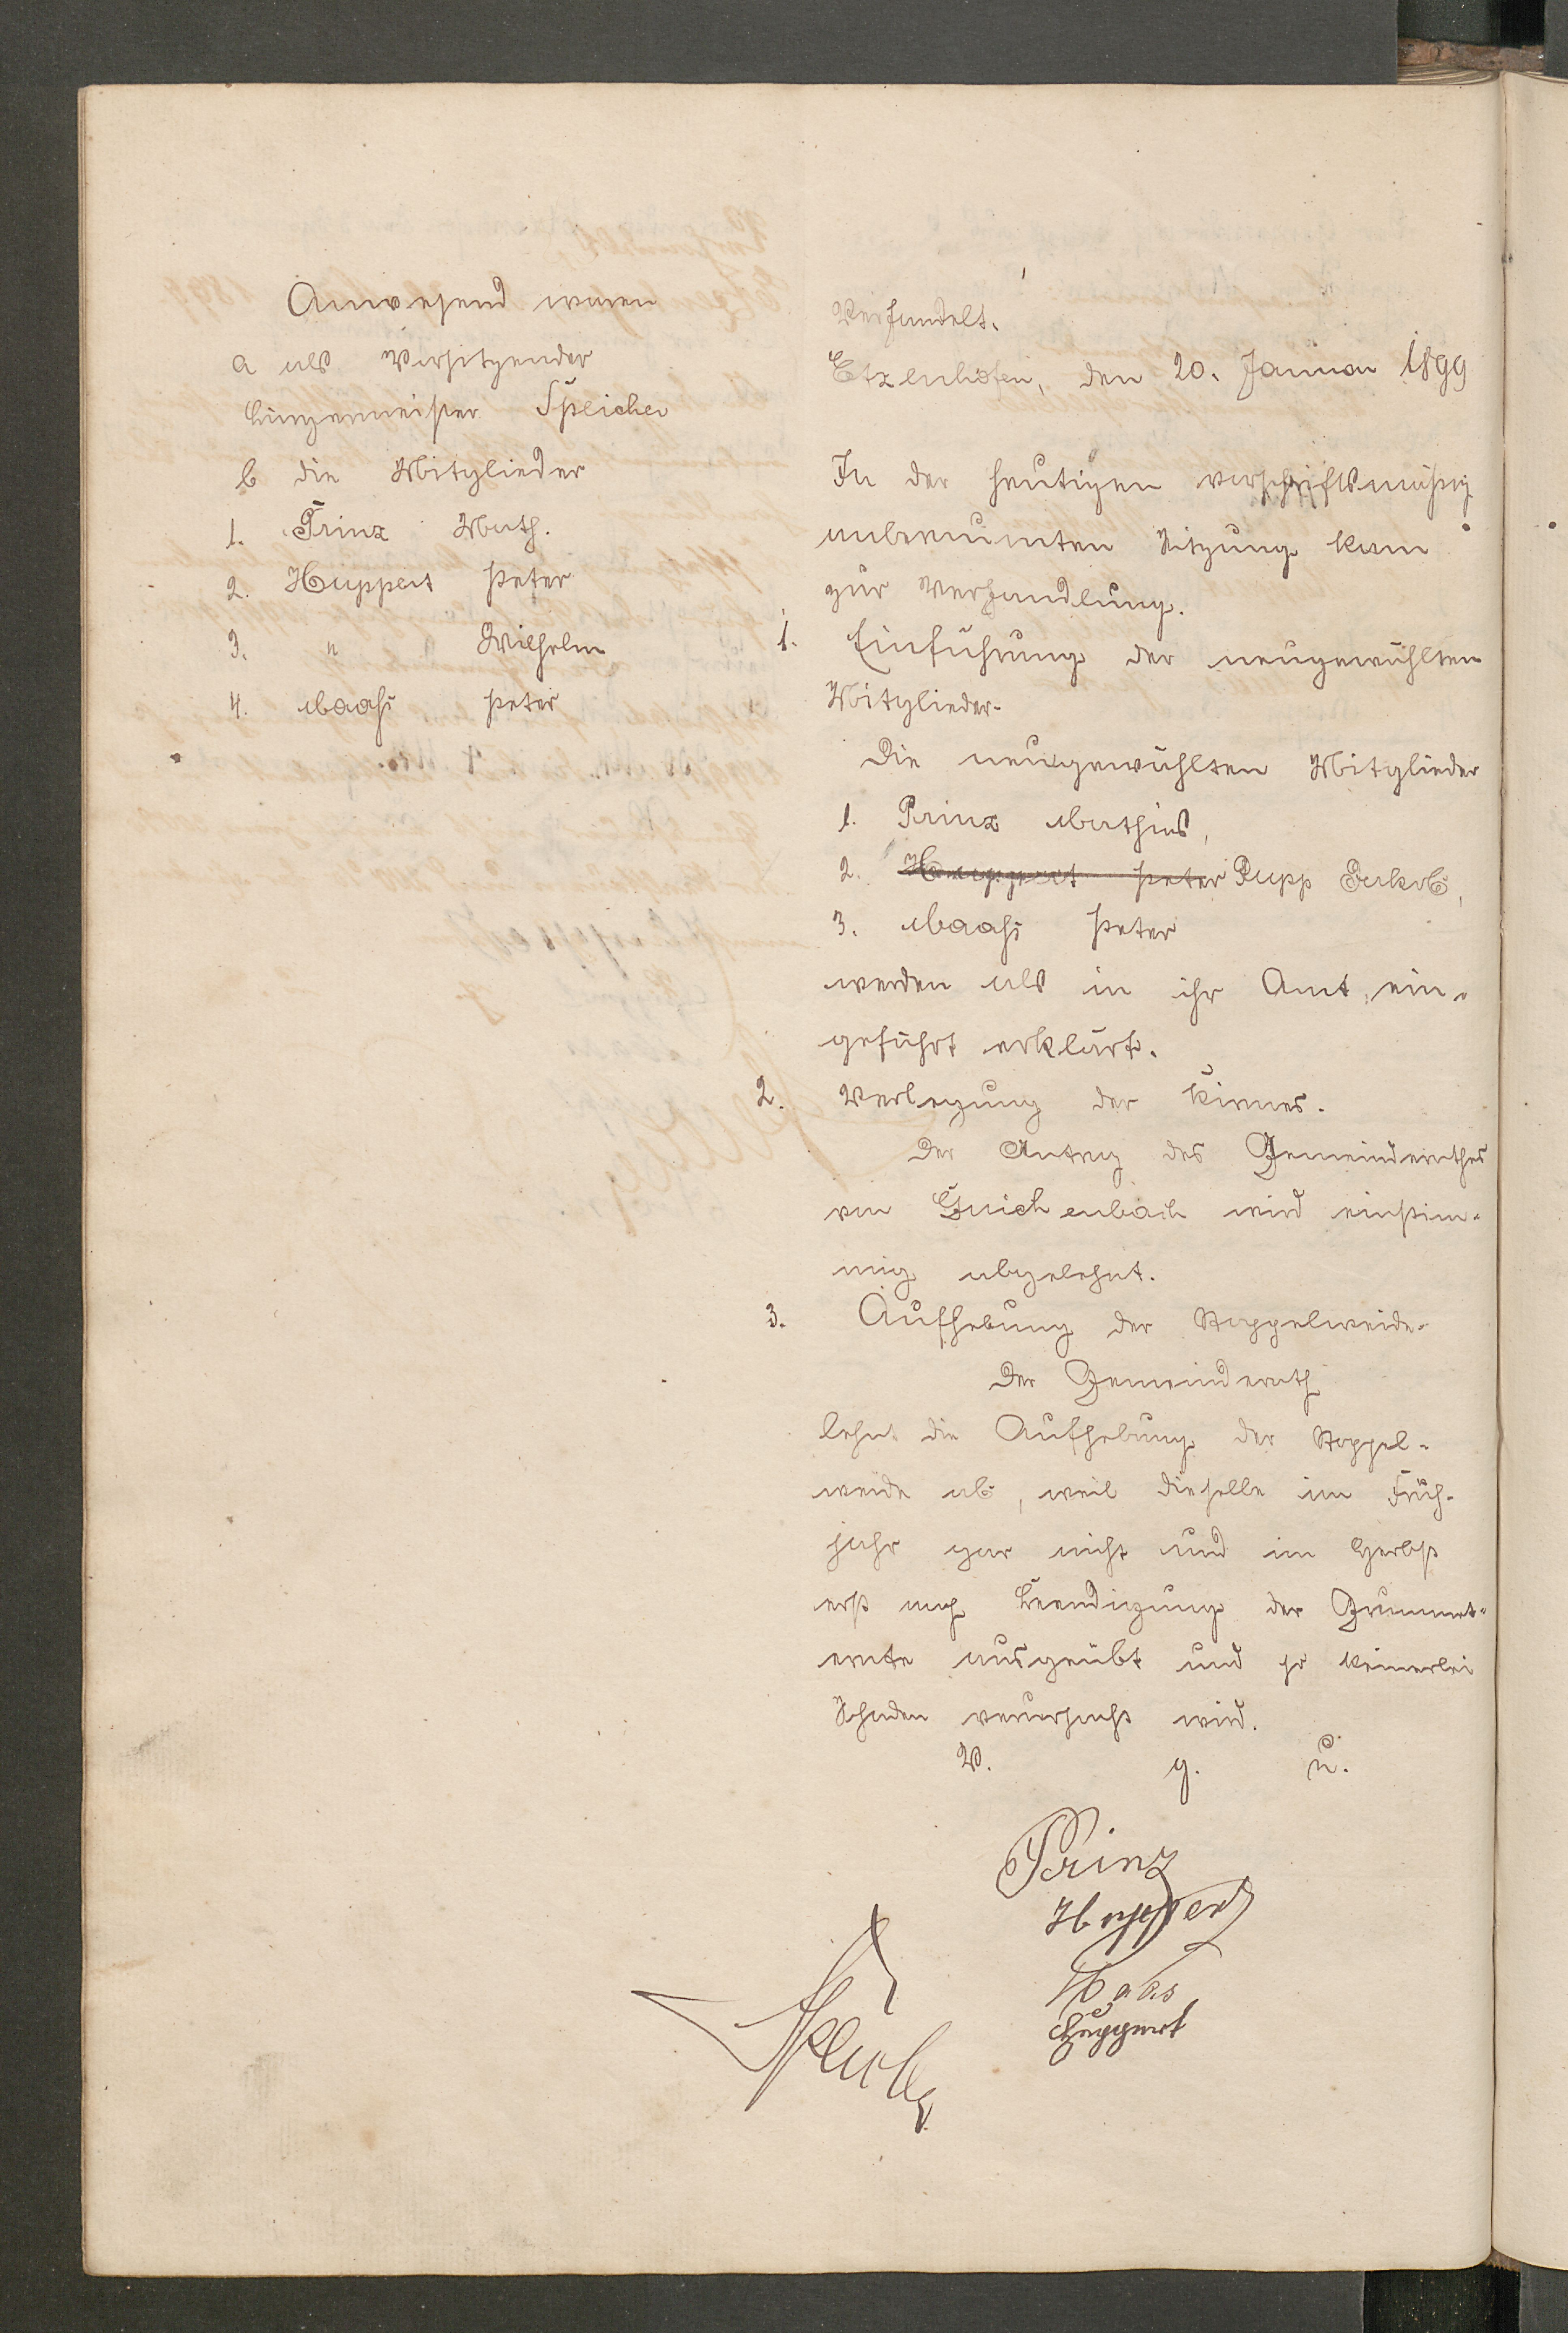 Anwesend waren
a als Vorsitzender
Bürgermeister Speicher
b die Mitglieder
1. Prinz Math.
2. Huppert Peter
3. " Wilhelm
4. Maaß Peter
Verhandelt.
Etzenhofen, den 20. Januar 1899
In der heutigen vorschriftsmäßig
anberaumten Sitzung kam
zur Verhandlung.
1. Einführung der neugewählten
Mitglieder.
Die neugewählten Mitglieder
1. Prinz Mathias,
2. Huppert Peter Rupp Jakob,
3. Maaß Peter
werden als in ihr Amt ein-
geführt erklärt.
2. Verlegung der Kirmes.
Der Antrag des Gemeinderathes
von Guichenbach wird einstim-
mig abgelehnt.
3. Aufhebung der Stoppelweide.
Der Gemeinderath
lehnt die Aufhebung der Stoppel-
weide ab, weil dieselbe im Früh-
jahr gar nicht und im Herbst
erst nach Beendigung der Grummet-
ernte ausgeübt und so keinerlei
Schaden verursacht wird.
V. g. u.
Prinz
Huppert
Maas
Huppert
Speicher